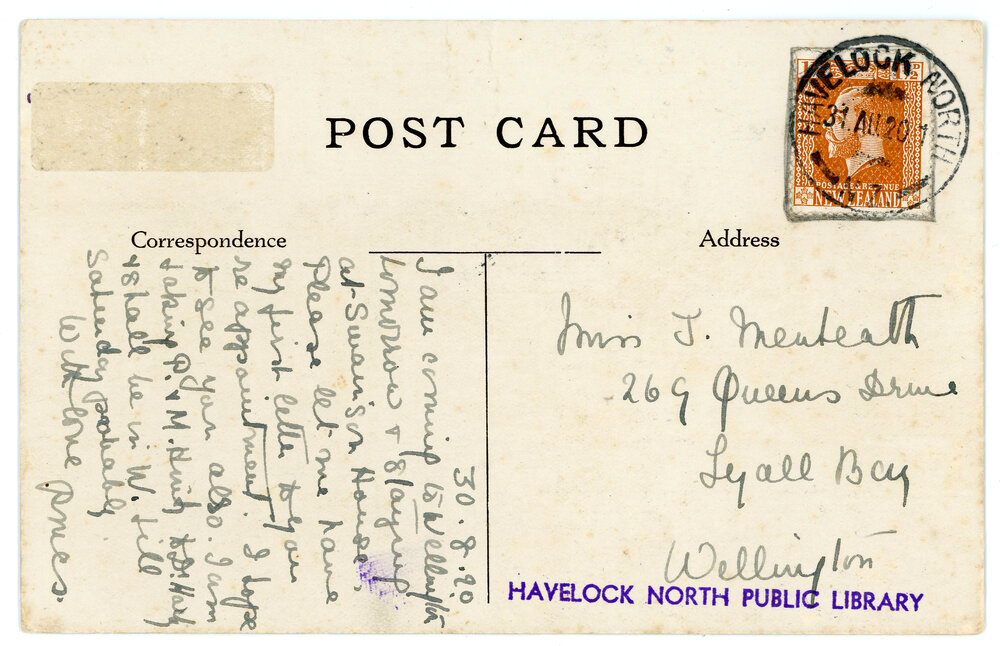 POST CARD
1½D
POSTAGE & REVENUE
NEW ZEALAND
HAVELOCK NORTH
31 AU 20
N.Z.
Correspondence
Address
30.8.20
I am coming to Wellington
tomorrow & staying
at Swainson House.
Please let me have
my first letter to you
re appointment. I hope
to see you also. I am
taking P. & M.
& shall be in W. till
Saturday probably
With love
Miss J. Menteath
269 Queens Drive
Lyall Bay
Wellington
HAVELOCK NORTH PUBLIC LIBRARY